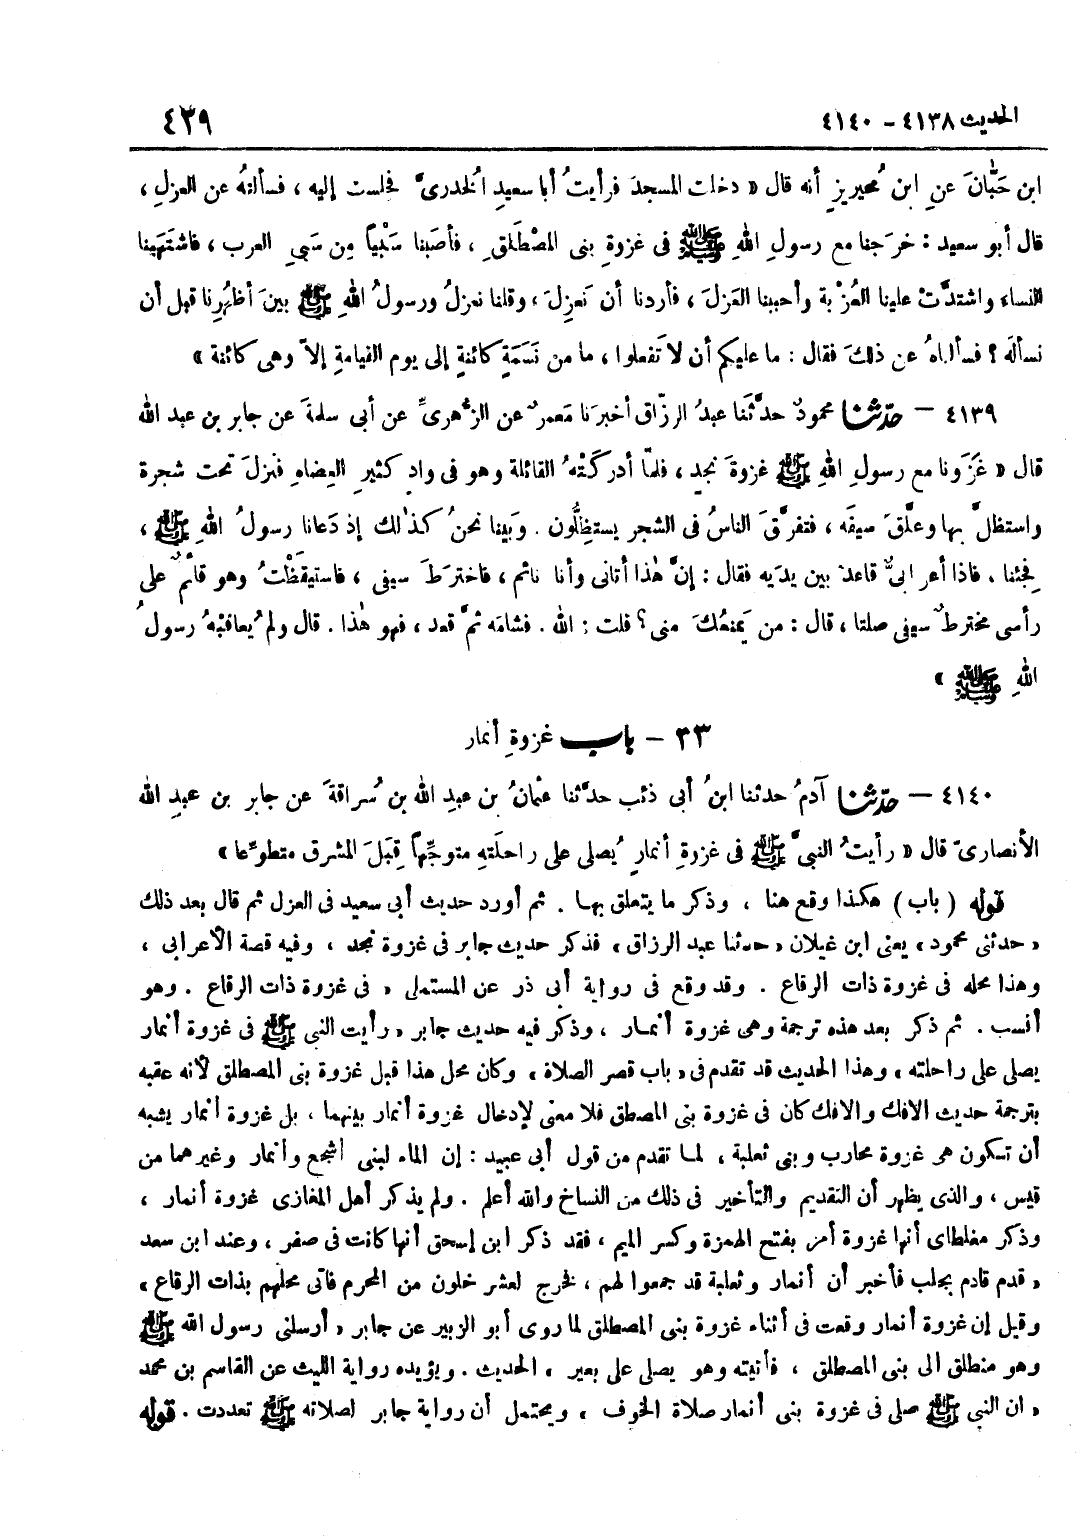 الحديث ٤١٣٨ – ٤١٤٠
٤٣٩
ابن حَبَّانَ عنِ ابن مُحيريزٍ أنه قال « دخلت المسجدَ فرأيتُ أبا سعيدٍ الُخدرىَّ فجلست إليه ، فسألتهُ عن العزلِ ،
قال أبو سعيد : خرَجنا مع رسولِ اللهِ ﷺ فى غزوةِ بنى المصْطَلقِ ، فأصَبنا سَبْياً مِن سَبىِ العرب ، فاشتَهَينا
النساء واشتدَّتْ علينا العُزْبة وأحببنا العَزلَ ، فأردنا أن نَعزِلَ ، وقلنا نعزلُ ورسولُ اللهِ ﷺ بينَ أظهُرِنا قبل أن
نسألَه ؟ فسألناهُ عن ذلكَ فقال : ما عليكم أن لا تَفعلوا ، ما من نَسَمَةٍ كائنةٍ إلى يوم القيامةِ إلاّ وهى كائنة »
٤١٣٩ – حدّثنا محمودٌ حدَّثَنا عبدُ الرزّاق أخبرَنا مَعمرٌ عن الزُّهرىِّ عن أبى سلمةَ عن جابر بن عبد الله
قال « غَزَونا مع رسولِ اللهِ ﷺ غزوةَ نجدٍ ، فلمّا أدركَتْهُ القائلة وهو فى وادٍ كثيرِ العِضاهِ فنزلَ تحت شجرة
واستظلَّ بها وعلَّقَ سيفَه ، فتفرَّقَ الناسُ فى الشجر يستظِلُّون . وبَينا نحنُ كذٰلك إذ دَعانا رسولُ اللهِ ﷺ ،
فجِئنا . فاذا أعرابىٌّ قاعدٌ بين يدَيه فقال : إنَّ هٰذا أتانى وأنا نائم ، فاخترَطَ سيفى ، فاستيقَظْتُ وهو قائمٌ على
رأسى مخترطٌ سيفى صلتا ، قال : من يَمنعُكَ منى ؟ قلت : الله . فشامَه ثمَّ قعد ، فهو هٰذا . قال ولم يُعاقبْهُ رسولُ
اللهِ ﷺ »
٣٣ – باب غزوةِ أنمار
٤١٤٠ – حدّثنا آدمُ حدثنا ابنُ أبى ذئب حدَّثنا عثمانُ بن عبدِ الله بن سُراقةَ عن جابر بن عبدِ الله
الأنصارىّ قال « رأيتُ النبىَّ ﷺ فى غزوةِ أنمارٍ يُصلى على راحلتهِ متوجِّهاً قِبَلَ المشرق متطوِّعا »
قوله ( باب ) هكذا وقع هنا ، وذكر ما يتعلق بها . ثم أورد حديث أبى سعيد فى العزل ثم قال بعد ذلك
« حدثنى محمود » يعنى ابن غيلان « حدثنا عبد الرزاق » فذكر حديث جابر فى غزوة نجد ، وفيه قصة الأعرابى ،
وهذا محله فى غزوة ذات الرقاع . وقد وقع فى رواية أبى ذر عن المستملى « فى غزوة ذات الرقاع . وهو
أنسب . ثم ذكر بعد هذه ترجمة وهى غزوة أنمار ، وذكر فيه حديث جابر « رأيت النبى ﷺ فى غزوة أنمار
يصلى على راحلته » وهذا الحديث قد تقدم فى « باب قصر الصلاة » وكان محل هذا قبل غزوة بنى المصطلق لأنه عقبه
بترجمة حديث الافك والافك كان فى غزوة بنى المصطلق فلا معنى لإدخال غزوة أنمار بينهما ، بل غزوة أنمار يشبه
أن تسكون هى غزوة محارب وبنى ثعلبة ، لما تقدم من قول أبى عبيد : إن الماء لبنى أشجع وأنمار وغيرهما من
قيس ، والذى يظهر أن التقديم والتأخير فى ذلك من النساخ والله أعلم . ولم يذكر أهل المغازى غزوة أنمار ،
وذكر مغلطاى أنها غزوة أمر بفتح الهمزة وكسر الميم ، فقد ذكر ابن إسحق أنها كانت فى صفر ، وعند ابن سعد
« قدم قادم بجلب فأخبر أن أنمار وثعلبة قد جمعوا لهم ، فخرج لعشر خلون من المحرم فأتى محلهم بذات الرقاع »
وقيل إن غزوة أنمار وقعت فى أثناء غزوة بنى المصطلق لما روى أبو الزبير عن جابر « أرسلنى رسول الله ﷺ
وهو منطلق الى بنى المصطلق ، فأتيته وهو يصلى على بعير » الحديث . ويؤيده رواية الليث عن القاسم بن محمد
« ان النبى ﷺ صلى فى غزوة بنى أنمار صلاة الخوف » ويحتمل أن رواية جابر لصلاته ﷺ تعددت . قوله